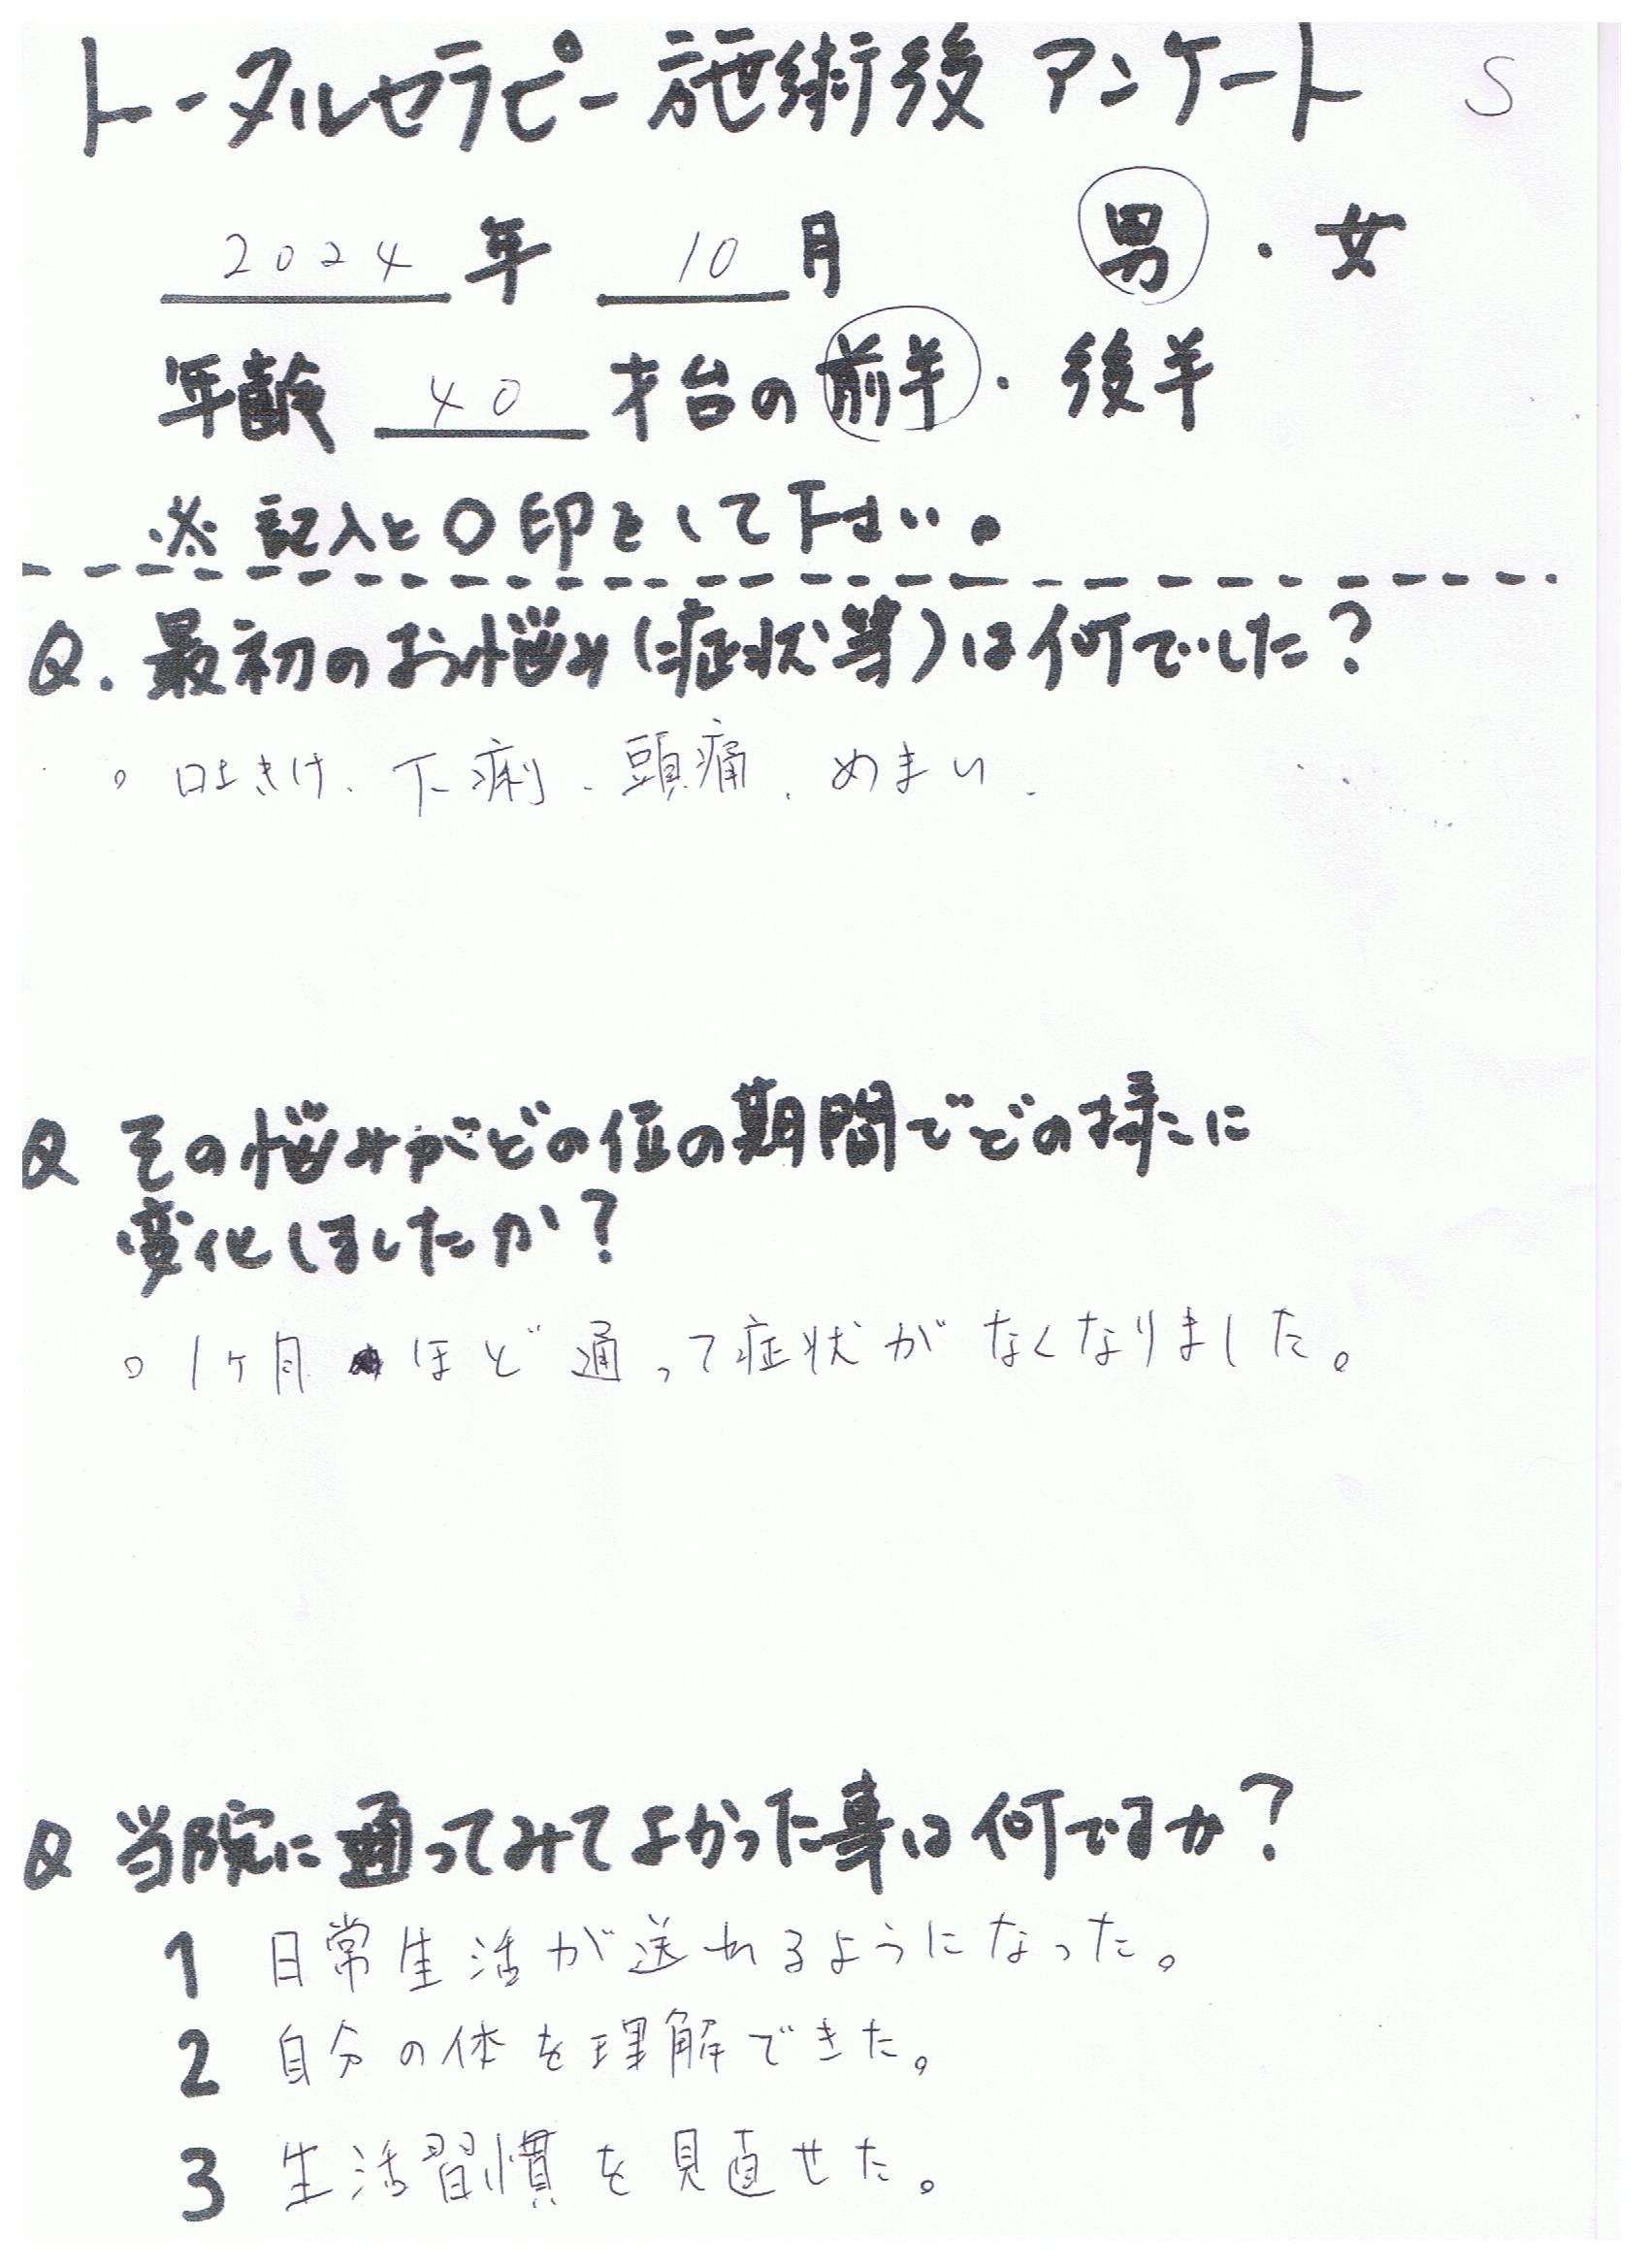 トータルセラピー施術後 アンケート S
2024年 10月 男・女
年齢 40 才台の前半・後半
※ 記入と〇印をして下さい。
Q. 最初のお悩み(症状等)は何でした?
。吐きけ、下痢、頭痛、めまい、
Q その悩みがどの位の期間でどの様に
変化しましたか?
。1ヶ月 ほど通って症状がなくなりました。
Q 当院に通ってみてよかった事は何ですか?
1 日常生活が送れるようになった。
2 自分の体を理解できた。
3 生活習慣を見直せた。